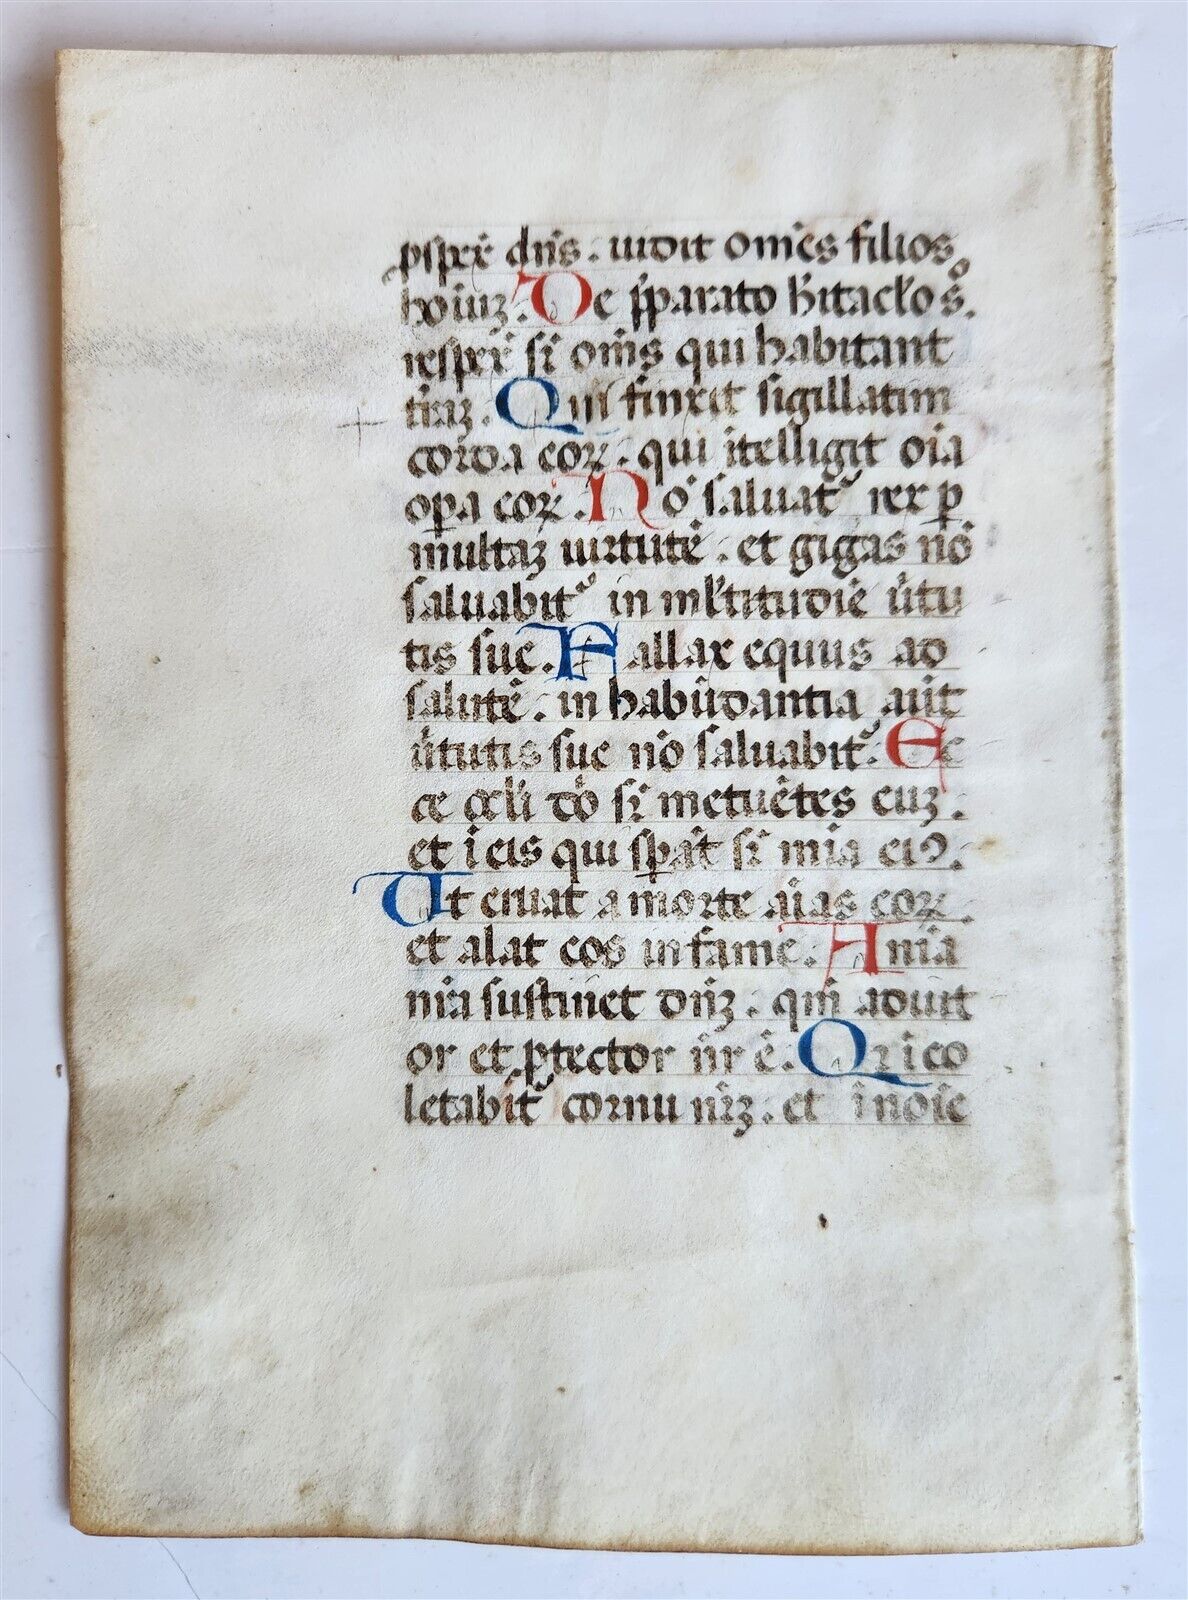 pspex̄ dn̄s. uidit om̄es filios
hoīuz. De p̄parato h̄itac̄lo s̊.
respex̄ sr̄ om̄s qui habitant
tr̄az. Qui finxit sigillatim
corda eoꝝ. qui ītelligit oīa
opa eoꝝ. Nō saluat᷑ rex ꝑ
multaz uirtutē. et gigas nō
saluabit᷑ in ml̄titudīe ūtu
tis sue. Fallax equus ad
salutē. in habūdantia aūt
ūtutis sue nō saluabit᷑. Ec
ce ocl̄i dō sr̄ metuētes euz.
et ī eis qui sꝑāt sr̄ mīa eiꝰ.
Ut eruat a morte aīas eoꝝ.
et alat eos in fame. Anīa
nr̄a sustinet dn̄z. qm̄ adiut
or et ꝓtector nr̄ ē. Qꝛ ī eo
letabit᷑ cor nr̄uz. et ī noīe